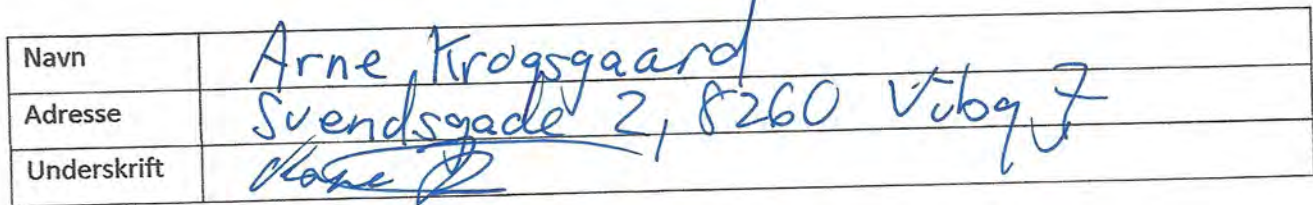 Navn Arne Krogsgaard
Adresse Svendsgade 2, 8260 Viby J
Underskrift